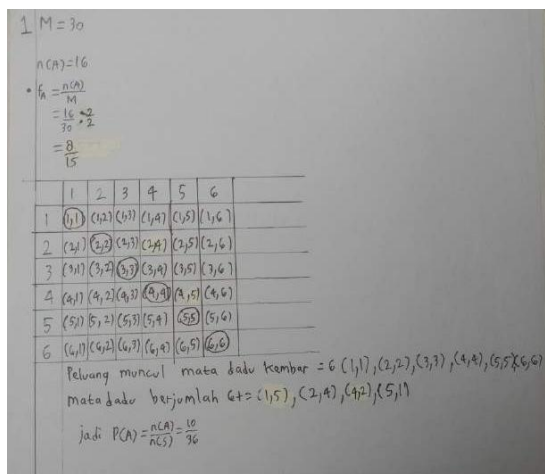 1 M = 30
n(A) = 16
• fA = n(A)/M
= 16/30 : 2/2
= 8/15
1 2 3 4 5 6
1 (1,1) (1,2) (1,3) (1,4) (1,5) (1,6)
2 (2,1) (2,2) (2,3) (2,4) (2,5) (2,6)
3 (3,1) (3,2) (3,3) (3,4) (3,5) (3,6)
4 (4,1) (4,2) (4,3) (4,4) (4,5) (4,6)
5 (5,1) (5,2) (5,3) (5,4) (5,5) (5,6)
6 (6,1) (6,2) (6,3) (6,4) (6,5) (6,6)
Peluang muncul mata dadu kembar = 6 (1,1), (2,2), (3,3), (4,4), (5,5) (6,6)
mata dadu berjumlah 6 = (1,5), (2,4), (4,2), (5,1)
jadi P(A) = n(A)/n(S) = 10/36